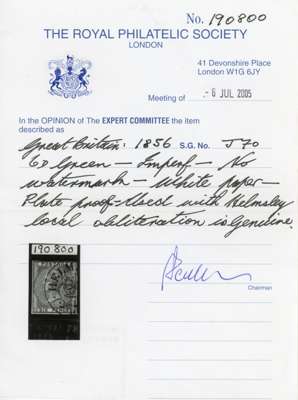 No. 190800
THE ROYAL PHILATELIC SOCIETY
LONDON
41 Devonshire Place
London W1G 6JY
Meeting of - 6 JUL 2005
In the OPINION of The EXPERT COMMITTEE the item
described as
Great Britain: 1856 S.G. No. J70
6D Green — Imperf — No
watermark — White paper —
Plate proof - Used with Helmsley
local obliteration is Genuine.
190 800
Chairman